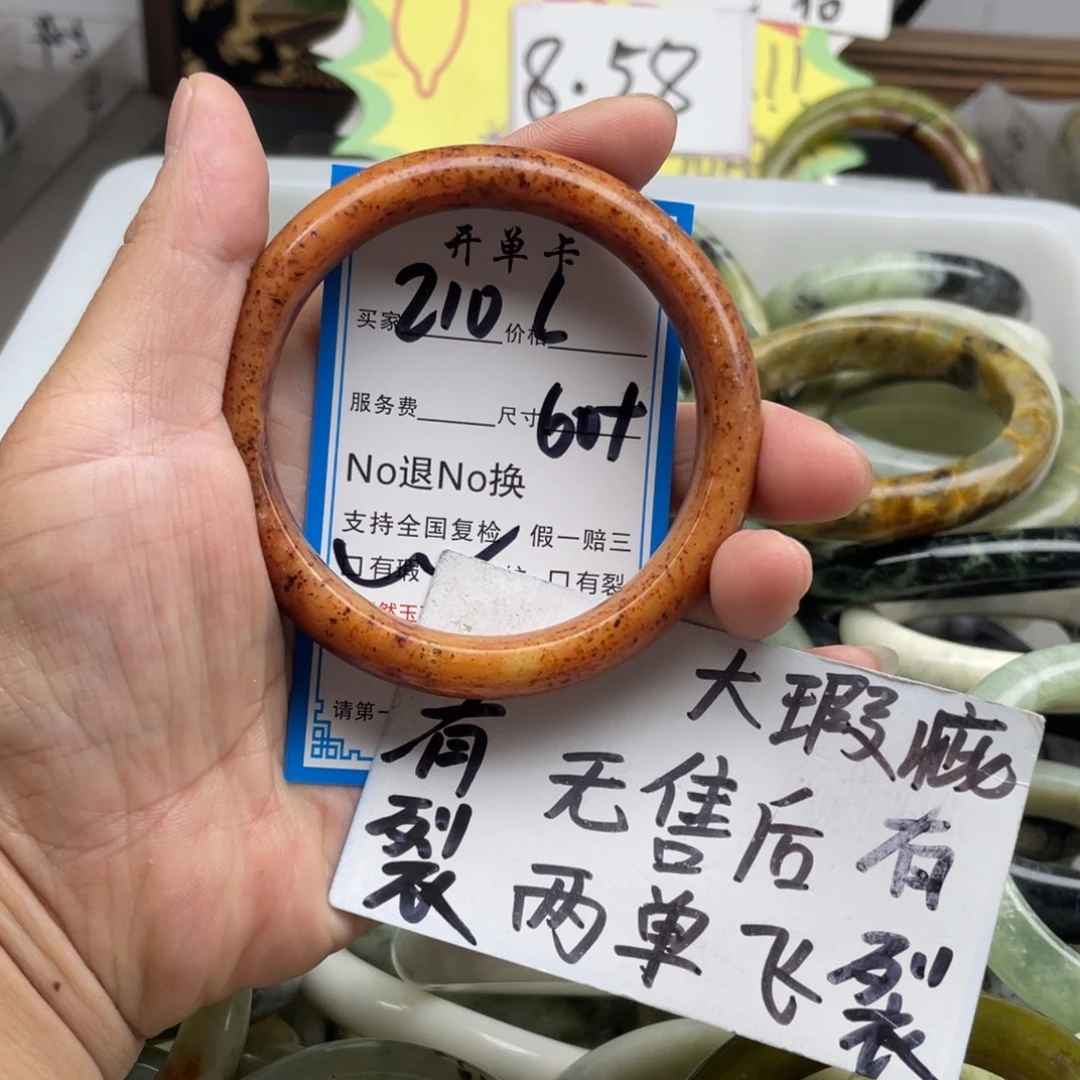 8.58
!!
开单卡
买家210 价格L
服务费 尺寸60+
No退No换
支持全国复检 假一赔三
口有瑕 口有裂
然玉
请第一
大瑕疵
有裂
无售后
有裂
两单飞